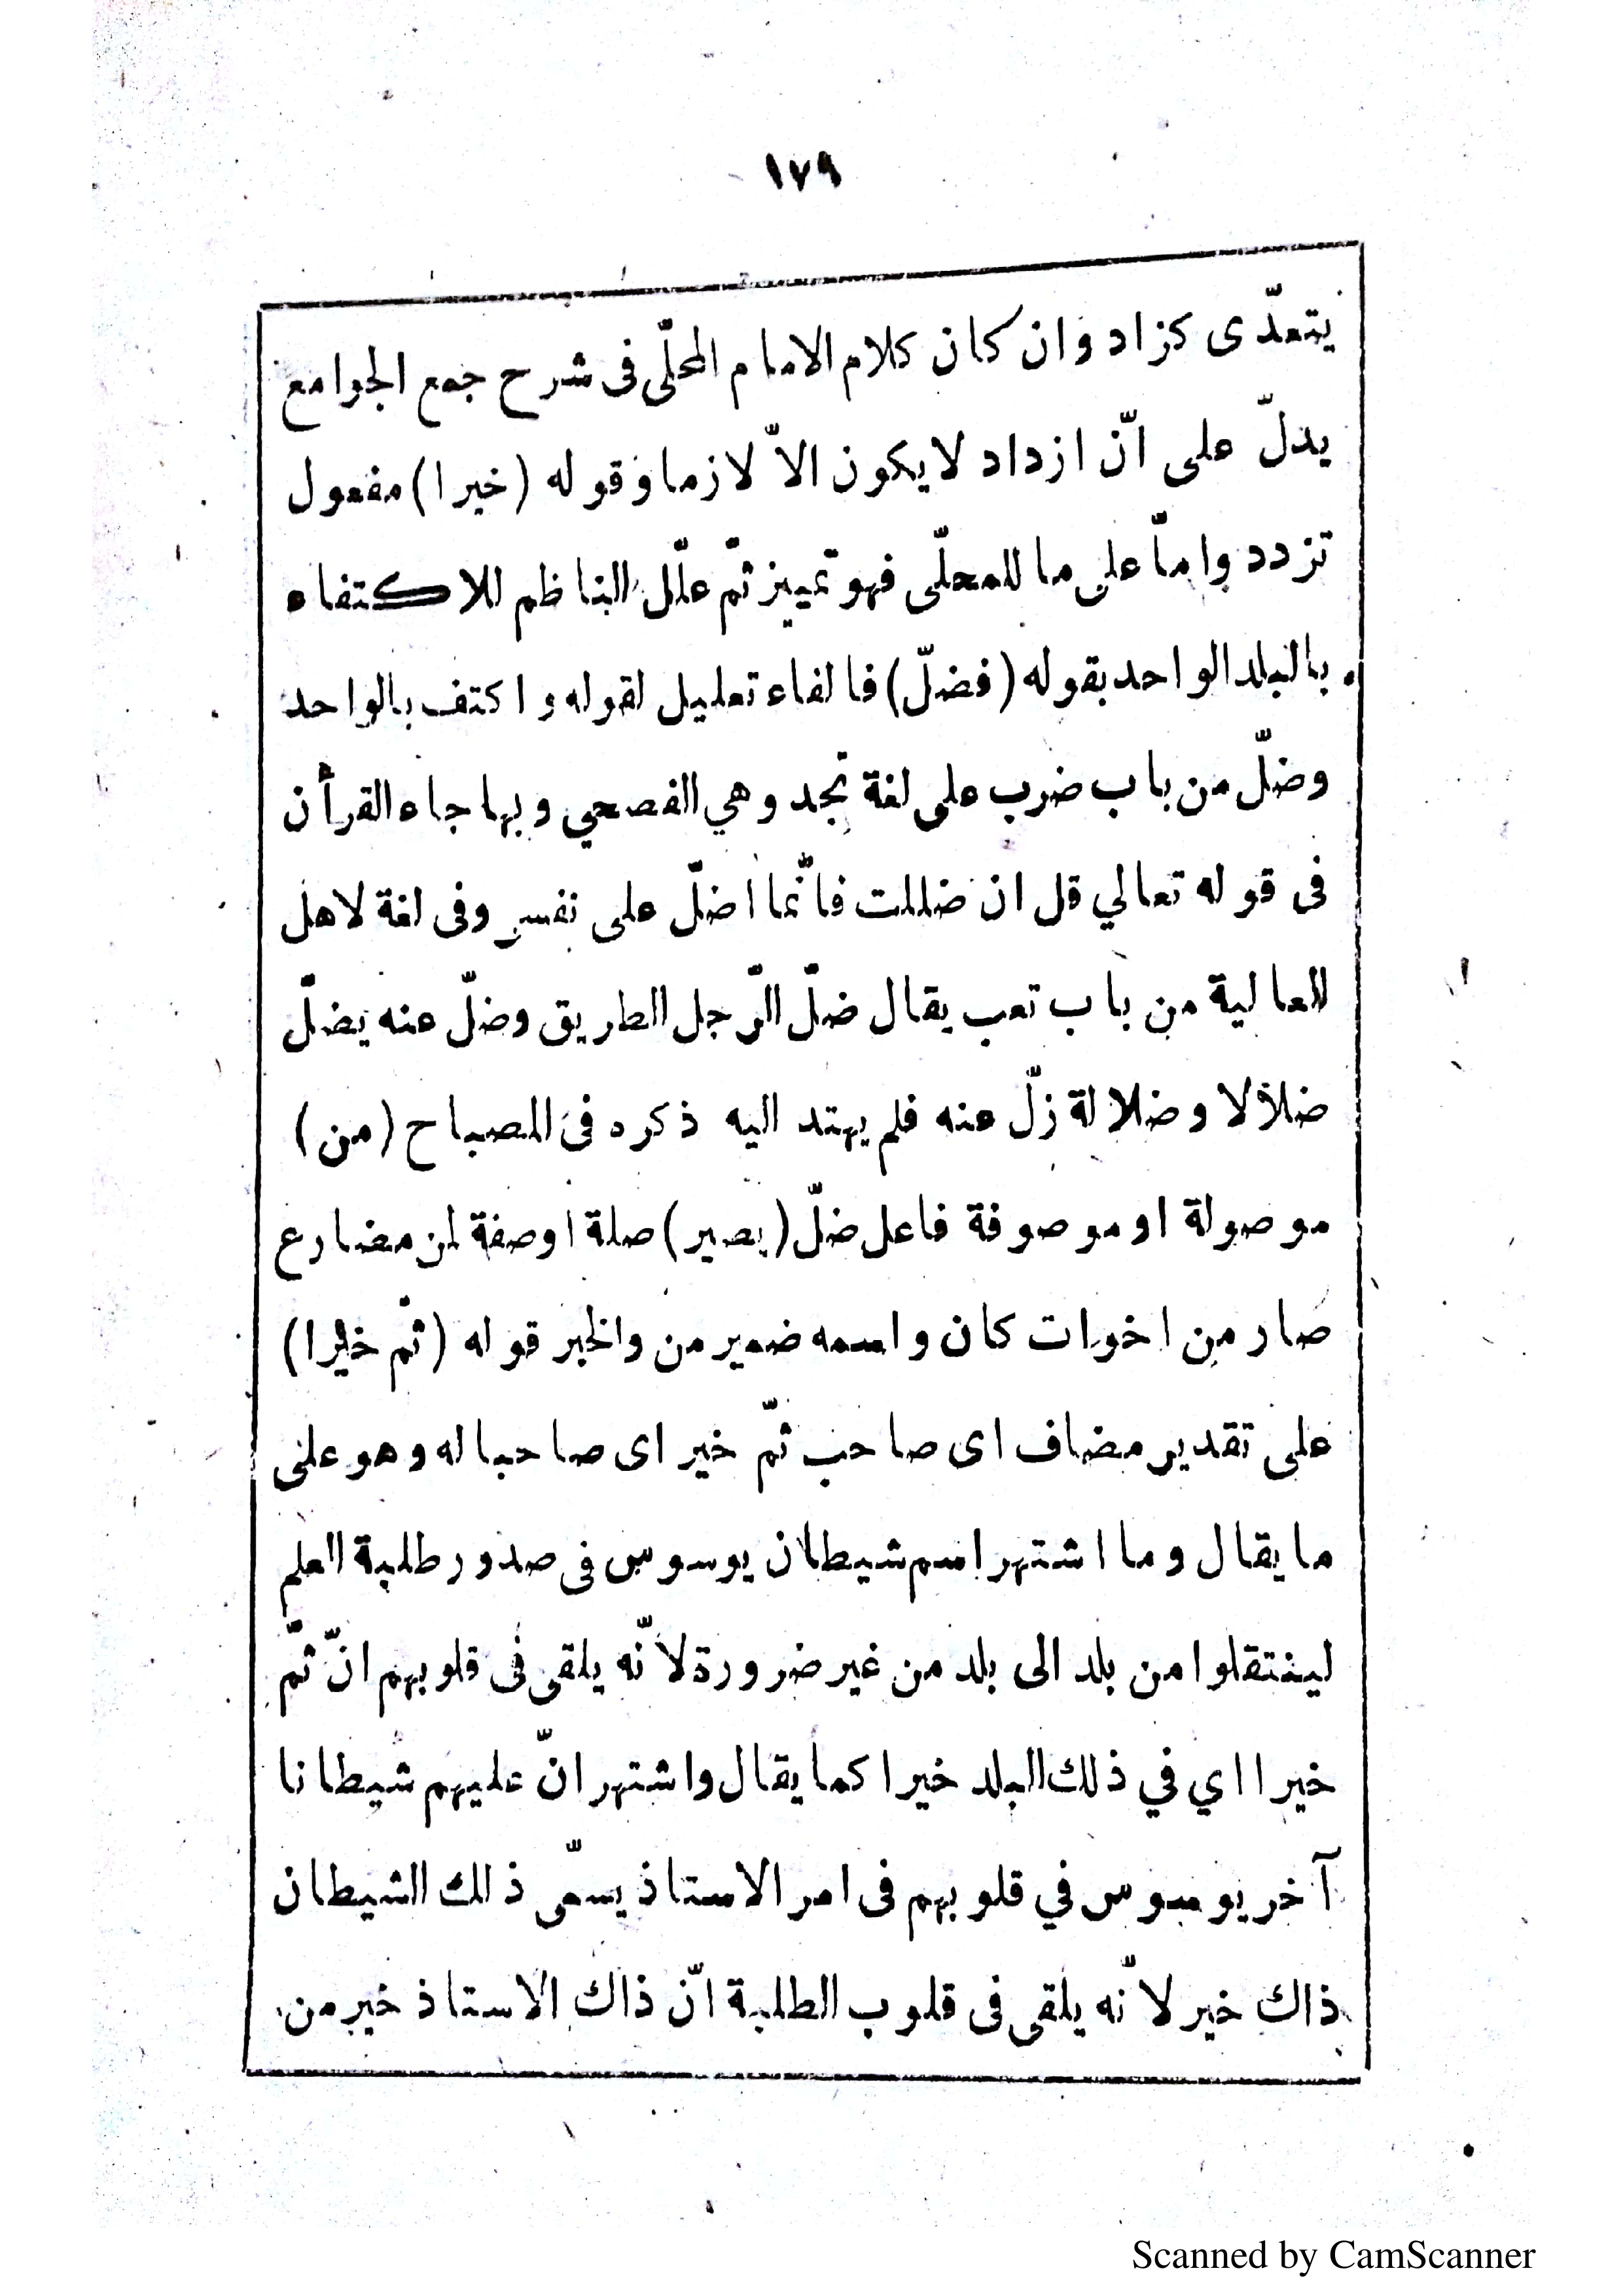 ١٧٩
يتعدّى كزاد وان كان كلام الامام المحلّى فى شرح جمع الجوامع
يدلّ على انّ ازداد لايكون الاّ لازما وقوله (خيرا) مفعول
تزدد وامّا على ما للمحلّى فهو تمييز ثمّ علّل الناظم للاكتفاء
بالبلد الواحد بقوله (فضلّ) فالفاء تعليل لقوله واكتف بالواحد
وضلّ من باب ضرب على لغة نجد وهي الفصحي وبها جاء القرأن
فى قوله تعالي قل ان ضللت فانّما اضلّ على نفسي وفى لغة لاهل
العالية من باب تعب يقال ضلّ الرّجل الطريق وضلّ عنه يضلّ
ضلالا وضلالة زلّ عنه فلم يهتد اليه ذكره فى المصباح (من)
موصولة او موصوفة فاعل ضلّ (يصير) صلة اوصفة لمن مضارع
صار من اخوات كان واسمه ضمير من والخبر قوله (ثمّ خيرا)
على تقدير مضاف اى صاحب ثمّ خير اى صاحبا له وهو على
ما يقال وما اشتهر اسم شيطان يوسوس فى صدور طلبة العلم
لينتقلوا من بلد الى بلد من غير ضرورة لانّه يلقى فى قلوبهم انّ ثمّ
خيرا اي في ذلك البلد خيرا كما يقال واشتهر انّ عليهم شيطانا
آخر يوسوس في قلوبهم فى امر الاستاذ يسمّى ذلك الشيطان
ذاك خير لانّه يلقى فى قلوب الطلبة انّ ذاك الاستاذ خير من
Scanned by CamScanner